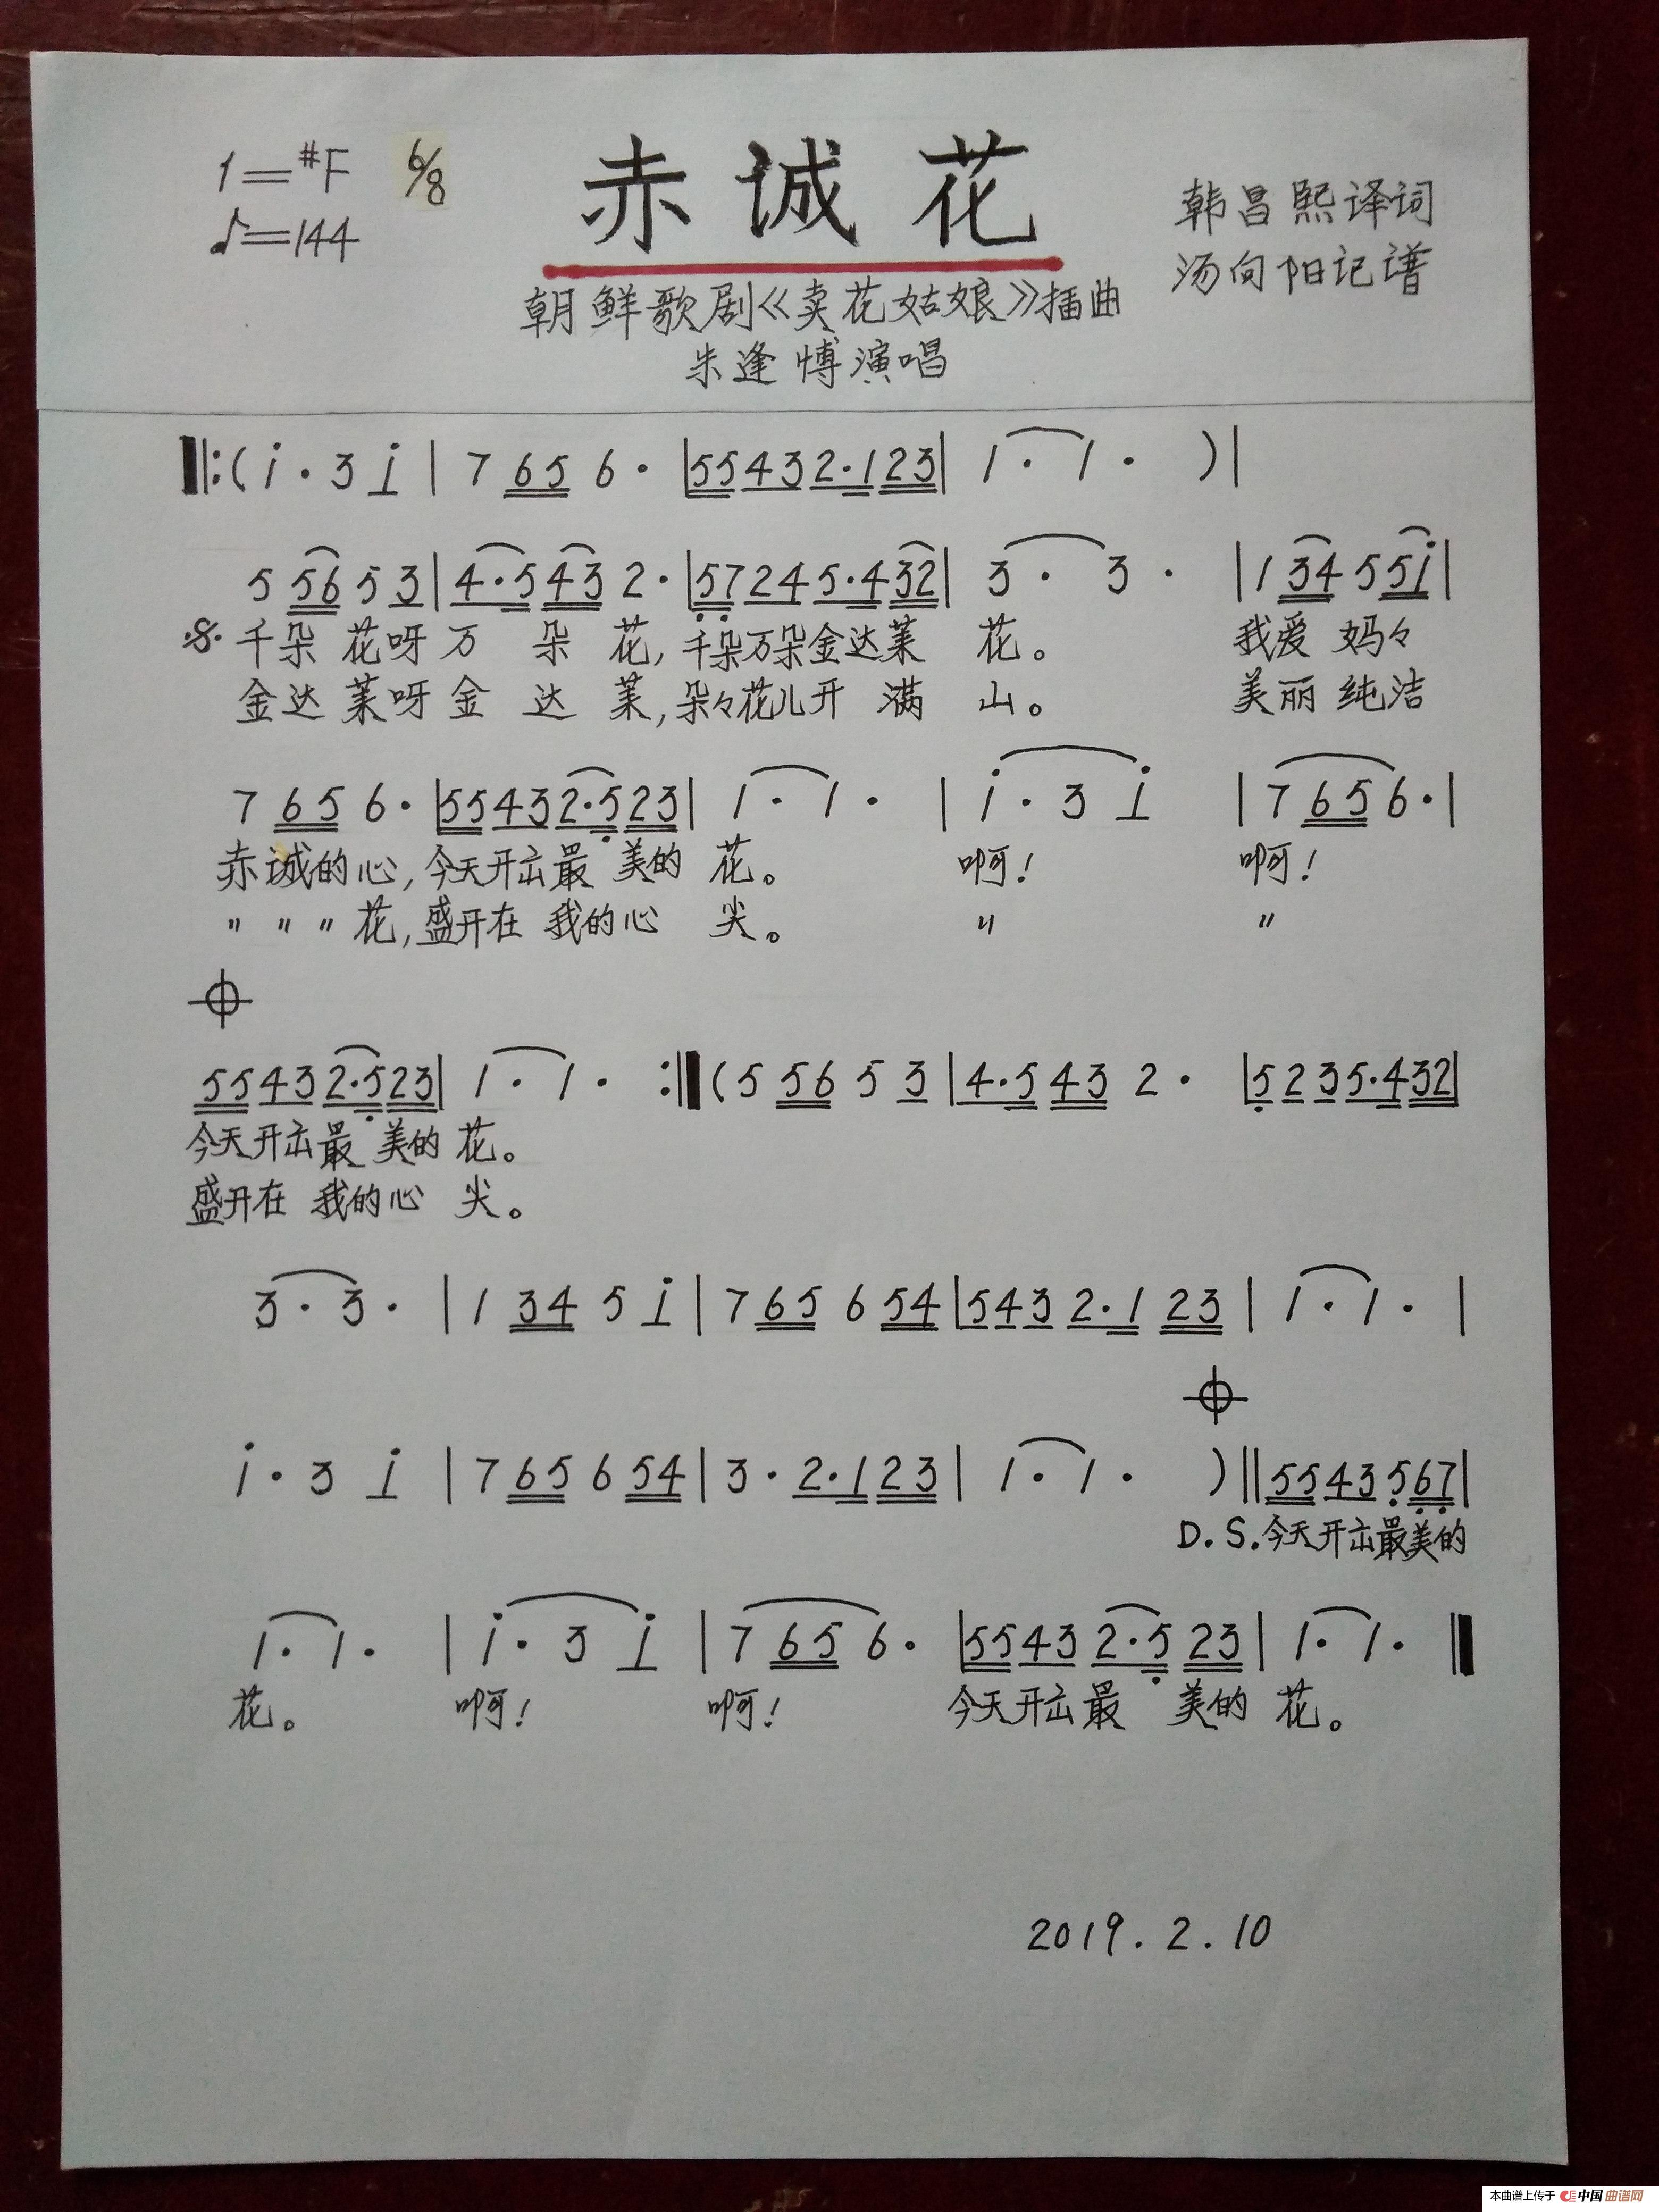 1=#F 6/8
♪=144
赤诚花
韩昌熙译词
汤向阳记谱
朝鲜歌剧《卖花姑娘》插曲
朱逢博演唱
‖:( i · 3 i | 7 6 5 6 · | 5 5 4 3 2 · 1 2 3 | 1 · 1 · ) |
5 5 6 5 3 | 4 · 5 4 3 2 · | 5 7 2 4 5 · 4 3 2 | 3 · 3 · | 1 3 4 5 5 i |
千朵花呀万朵花,千朵万朵金达莱花。 我爱妈々
金达莱呀金达莱,朵々花儿开满山。 美丽纯洁
7 6 5 6 · | 5 5 4 3 2 · 5 2 3 | 1 · 1 · | i · 3 i | 7 6 5 6 · |
赤诚的心,今天开出最美的花。 啊! 啊!
" " " 花,盛开在我的心尖。 " "
5 5 4 3 2 · 5 2 3 | 1 · 1 · :‖ ( 5 5 6 5 3 | 4 · 5 4 3 2 · | 5 2 3 5 · 4 3 2 |
今天开出最美的花。
盛开在我的心尖。
3 · 3 · | 1 3 4 5 i | 7 6 5 6 5 4 | 5 4 3 2 · 1 2 3 | 1 · 1 · |
i · 3 i | 7 6 5 6 5 4 | 3 · 2 · 1 2 3 | 1 · 1 · ) ‖ 5 5 4 3 5 6 7 |
D.S.今天开出最美的
1 · 1 · | i · 3 i | 7 6 5 6 · | 5 5 4 3 2 · 5 2 3 | 1 · 1 · ‖
花。 啊! 啊! 今天开出最美的花。
2019.2.10
本曲谱上传于 中国曲谱网